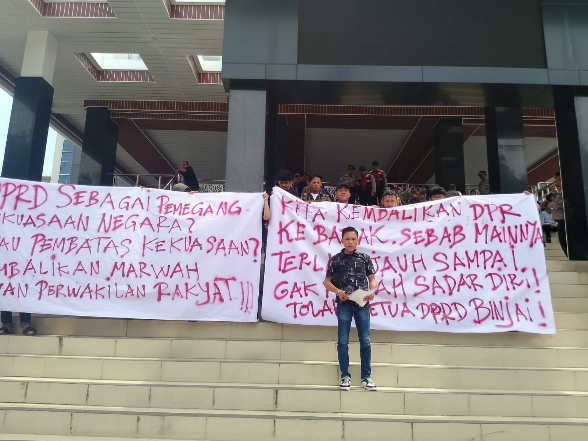 PRD SEBAGAI PEMEGANG
KUASAAN NEGARA?
AU PEMBATAS KEKUASAAN?
MBALIKAN MARWAH
AN PERWAKILAN RAKYAT!!!
KITA KEMBALIKAN DPR
KE BA AK. SEBAB MAINNYA
TERL JAUH SAMPAI
GAK AH SADAR DIRI!!
TOLA ETUA DPRD BINJAI!!